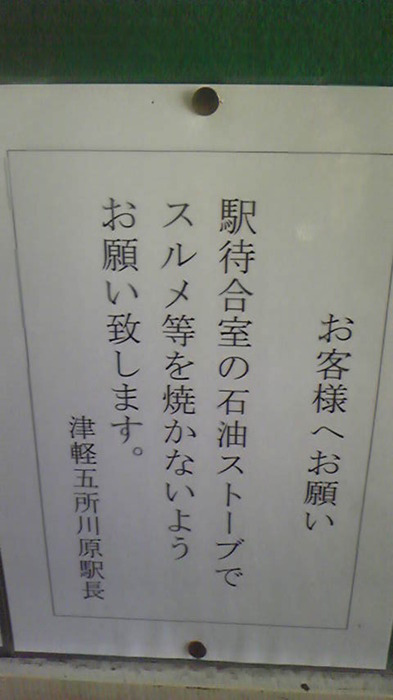 お客様へお願い
駅待合室の石油ストーブで
スルメ等を焼かないよう
お願い致します。
津軽五所川原駅長